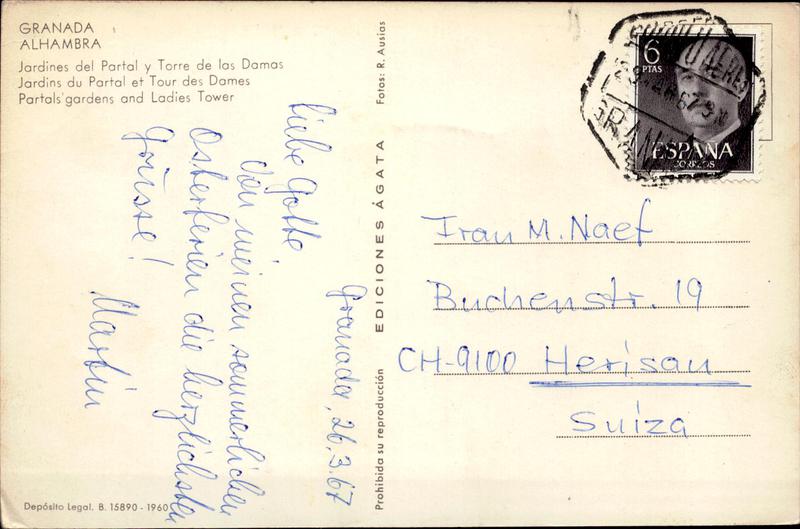 GRANADA
ALHAMBRA
Jardines del Partal y Torre de las Damas
Jardins du Partal et Tour des Dames
Partals' gardens and Ladies Tower
Granada, 26.3.67
Liebe Gotte
Von meinen sommerlichen
Osterferien die herzlichsten
Grüsse!
Martin
Depósito Legal. B. 15890 - 1960
Fotos: R. Ausias
EDICIONES ÁGATA
Prohibida su reproducción
6
PTAS
ESPAÑA
CORREOS
GRANADA
Frau M. Naef
Buchenstr. 19
CH-9100 Herisau
Suiza